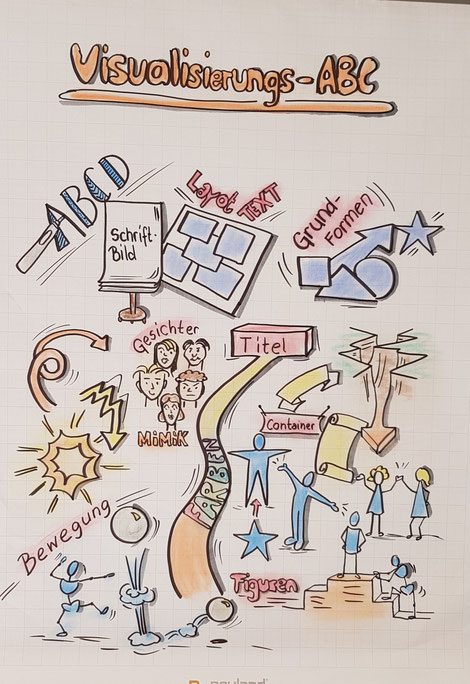 Visualisierungs-ABC
ABCD
Layot TEXT
Schrift-
Bild
Grund-
Formen
Gesichter
Titel
Container
MiMiK
FARBEN
Bewegung
Figuren